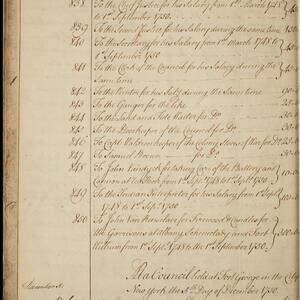 838 To the Chief Justice for his Salary from 1st March 1748/9
to 1st September 1750.
839 To the Second Justice for his Salary during the same time 150.
840 To the Secretary for his Salary from 1st March 1748 to
1st September 1750
841 To the Clerk of the Council for his Salary during the
same time
842 To the Printer for his Sal'y during the Same time
843 To the Gauger for the like
844 To the Land and Tide Waiter for Do.
845 To the Doorkeeper of the Council for Do.
846 To Capt. Waldron keeper of the Colony Stores of War for Do.
847 To Samuel Brown for Do.
848 To John Vandyck for taking Care of the Battery and
Cannon at from 1st Sept. 1748 to 1st Sept. 1750.
849 To the Indian Interpreter for his Salary from 1st Sept.
1748 to 1st Sept. 1750
850 To John Van Renselaer for Firewood & Candles for
the Garrisons at Albany Schenectady and Fort
William from 1st Sept. 1748 to the 1st September 1750.
At a Council held at Fort George in the City
New York the Day of December 1750.